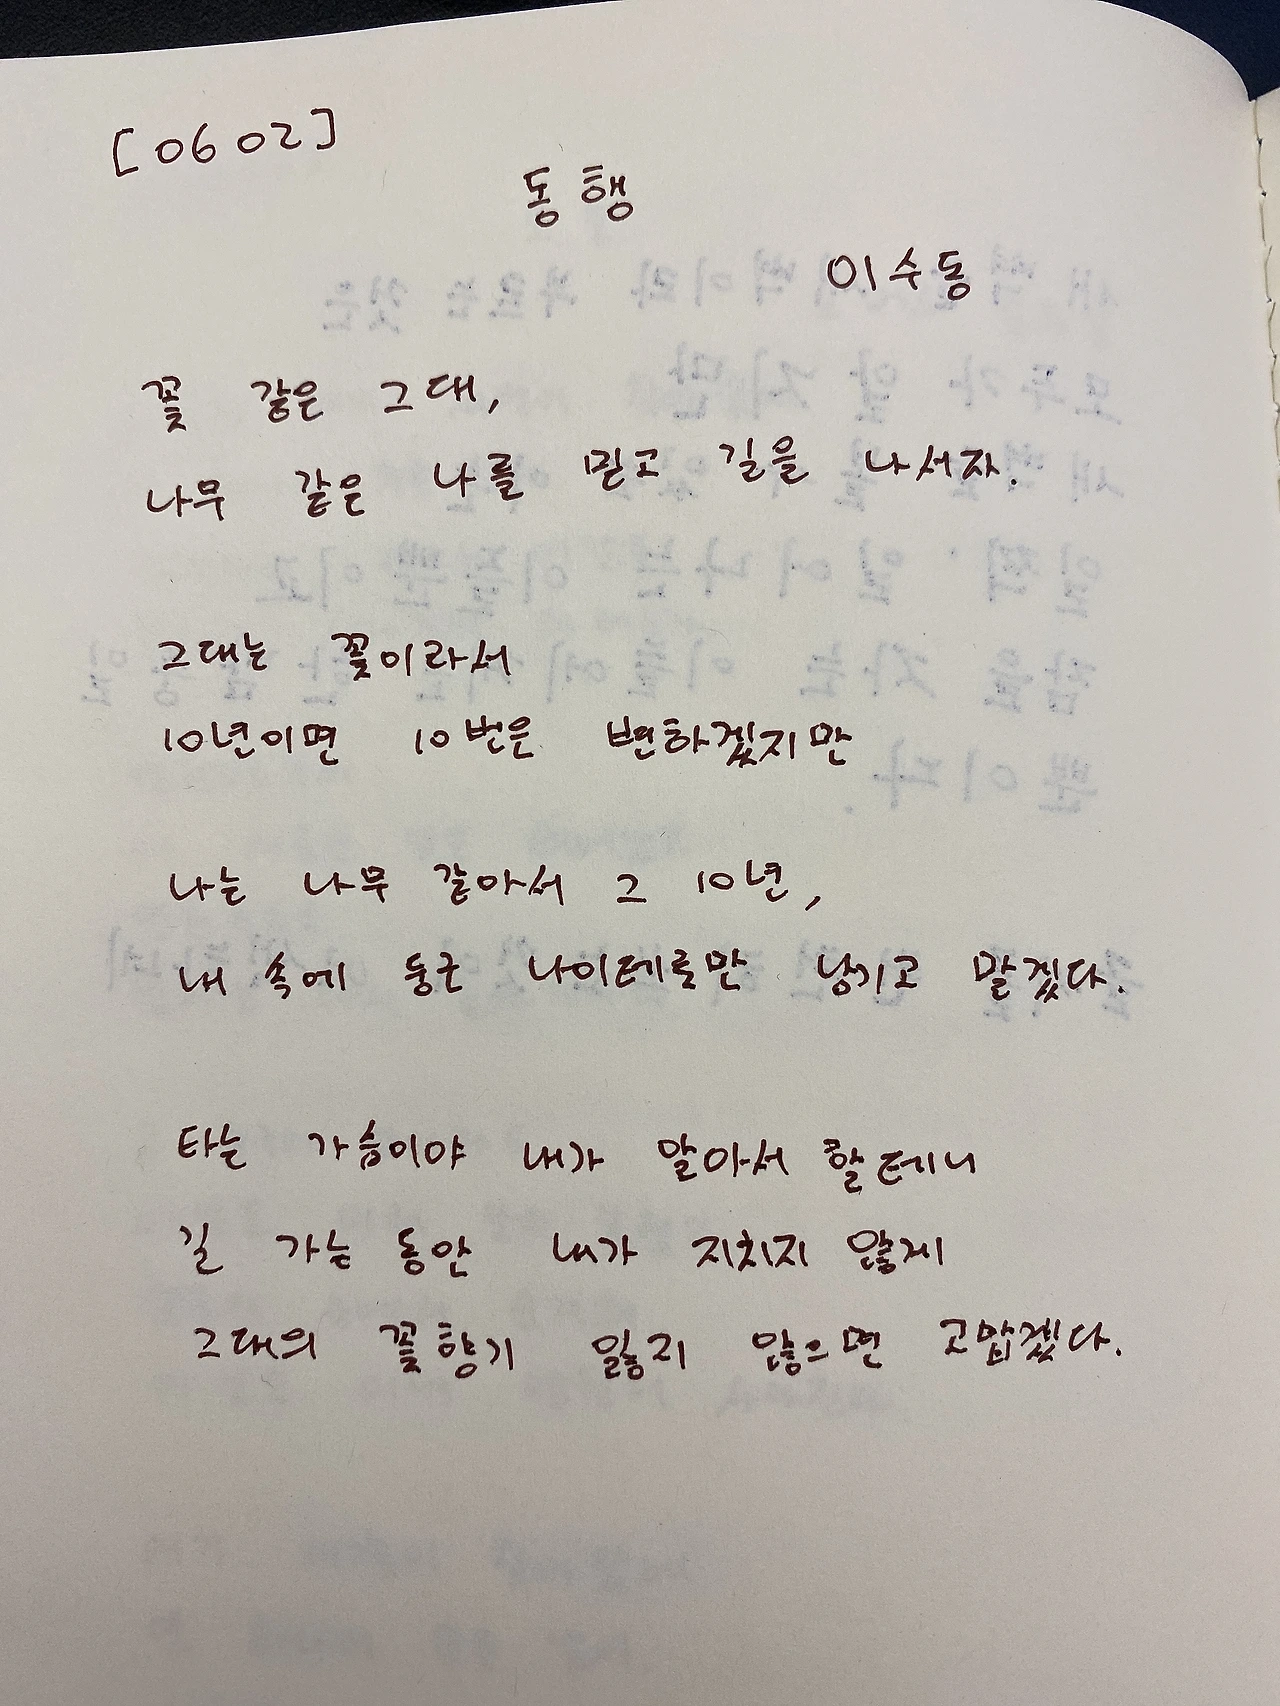 [0602]
동행
이수동
꽃 같은 그대,
나무 같은 나를 믿고 길을 나서자.
그대는 꽃이라서
10년이면 10번은 변하겠지만
나는 나무 같아서 그 10년,
내 속에 둥근 나이테로만 남기고 말겠다.
타는 가슴이야 내가 알아서 할테니
길 가는 동안 내가 지치지 않게
그대의 꽃향기 잃지 않으면 고맙겠다.